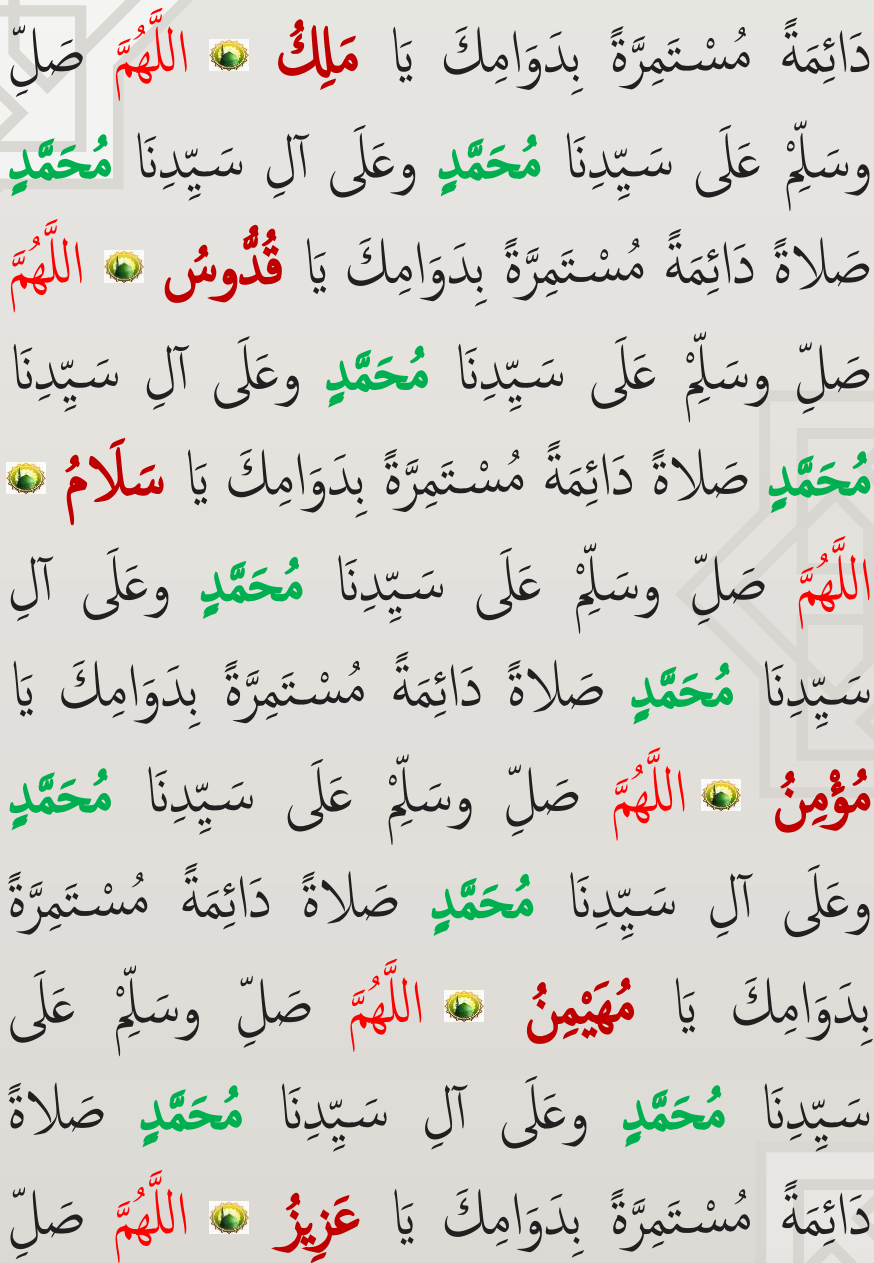 دَائِمَةً مُسْتَمِرَّةً بِدَوَامِكَ يَا مَلِكُ اللَّهُمَّ صَلِّ
وسَلِّمْ عَلَى سَيِّدِنَا مُحَمَّدٍ وعَلَى آلِ سَيِّدِنَا مُحَمَّدٍ
صَلاةً دَائِمَةً مُسْتَمِرَّةً بِدَوَامِكَ يَا قُدُّوسُ اللَّهُمَّ
صَلِّ وسَلِّمْ عَلَى سَيِّدِنَا مُحَمَّدٍ وعَلَى آلِ سَيِّدِنَا
مُحَمَّدٍ صَلاةً دَائِمَةً مُسْتَمِرَّةً بِدَوَامِكَ يَا سَلَامُ
اللَّهُمَّ صَلِّ وسَلِّمْ عَلَى سَيِّدِنَا مُحَمَّدٍ وعَلَى آلِ
سَيِّدِنَا مُحَمَّدٍ صَلاةً دَائِمَةً مُسْتَمِرَّةً بِدَوَامِكَ يَا
مُؤْمِنُ اللَّهُمَّ صَلِّ وسَلِّمْ عَلَى سَيِّدِنَا مُحَمَّدٍ
وعَلَى آلِ سَيِّدِنَا مُحَمَّدٍ صَلاةً دَائِمَةً مُسْتَمِرَّةً
بِدَوَامِكَ يَا مُهَيْمِنُ اللَّهُمَّ صَلِّ وسَلِّمْ عَلَى
سَيِّدِنَا مُحَمَّدٍ وعَلَى آلِ سَيِّدِنَا مُحَمَّدٍ صَلاةً
دَائِمَةً مُسْتَمِرَّةً بِدَوَامِكَ يَا عَزِيزُ اللَّهُمَّ صَلِّ